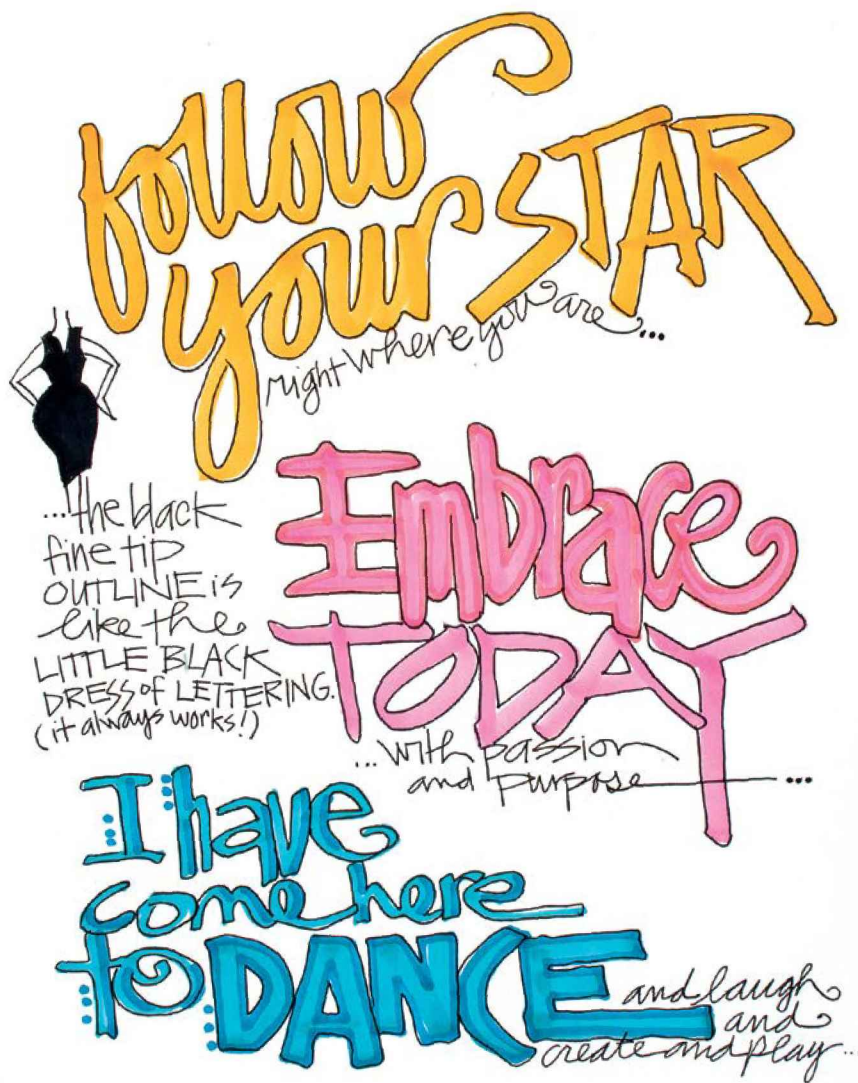 follow
your STAR
right where you are...
...the black
fine tip
OUTLINE is
like the
LITTLE BLACK
DRESS of LETTERING.
(it always works!)
Embrace
TODAY
...with passion
and purpose...
I have
come here
to DANCE
and laugh
and
create and play...